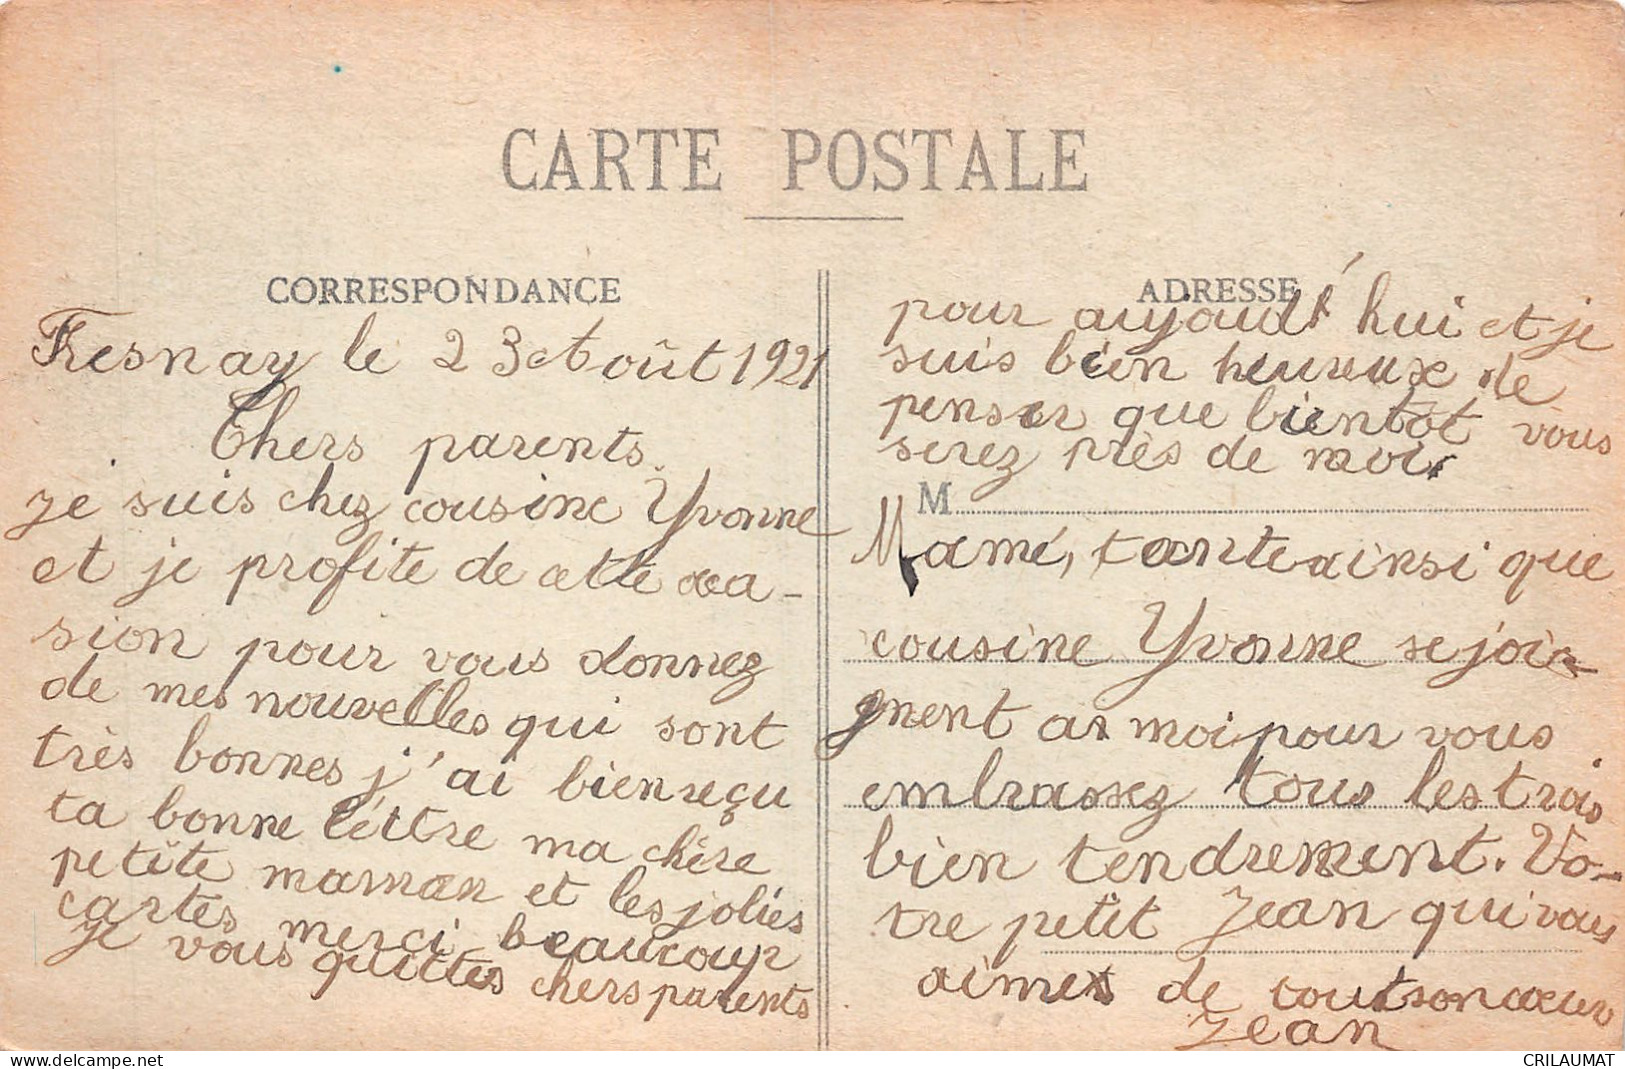 CARTE POSTALE
CORRESPONDANCE
Fresnay le 23 Août 1921
Chers parents.
je suis chez cousine Yvonne
et je profite de cette occa-
sion pour vous donnez
de mes nouvelles qui sont
très bonnes j'ai bien reçu
ta bonne léttre ma chère
petite maman et les jolies
cartes merci beaucoup
je vous quittes chers parents
ADRESSE
pour aujoud'hui et je
suis bien heureux de
penser que bientôt vous
serez près de moi.
M
Mamé, tante ainsi que
cousine Yvonne se joi-
gnent a moi pour vous
embrassez tous les trois
bien tendrement. Vo-
tre petit Jean qui vous
aimes de tout son cœur
Jean
delcampe.net
CRILAUMAT